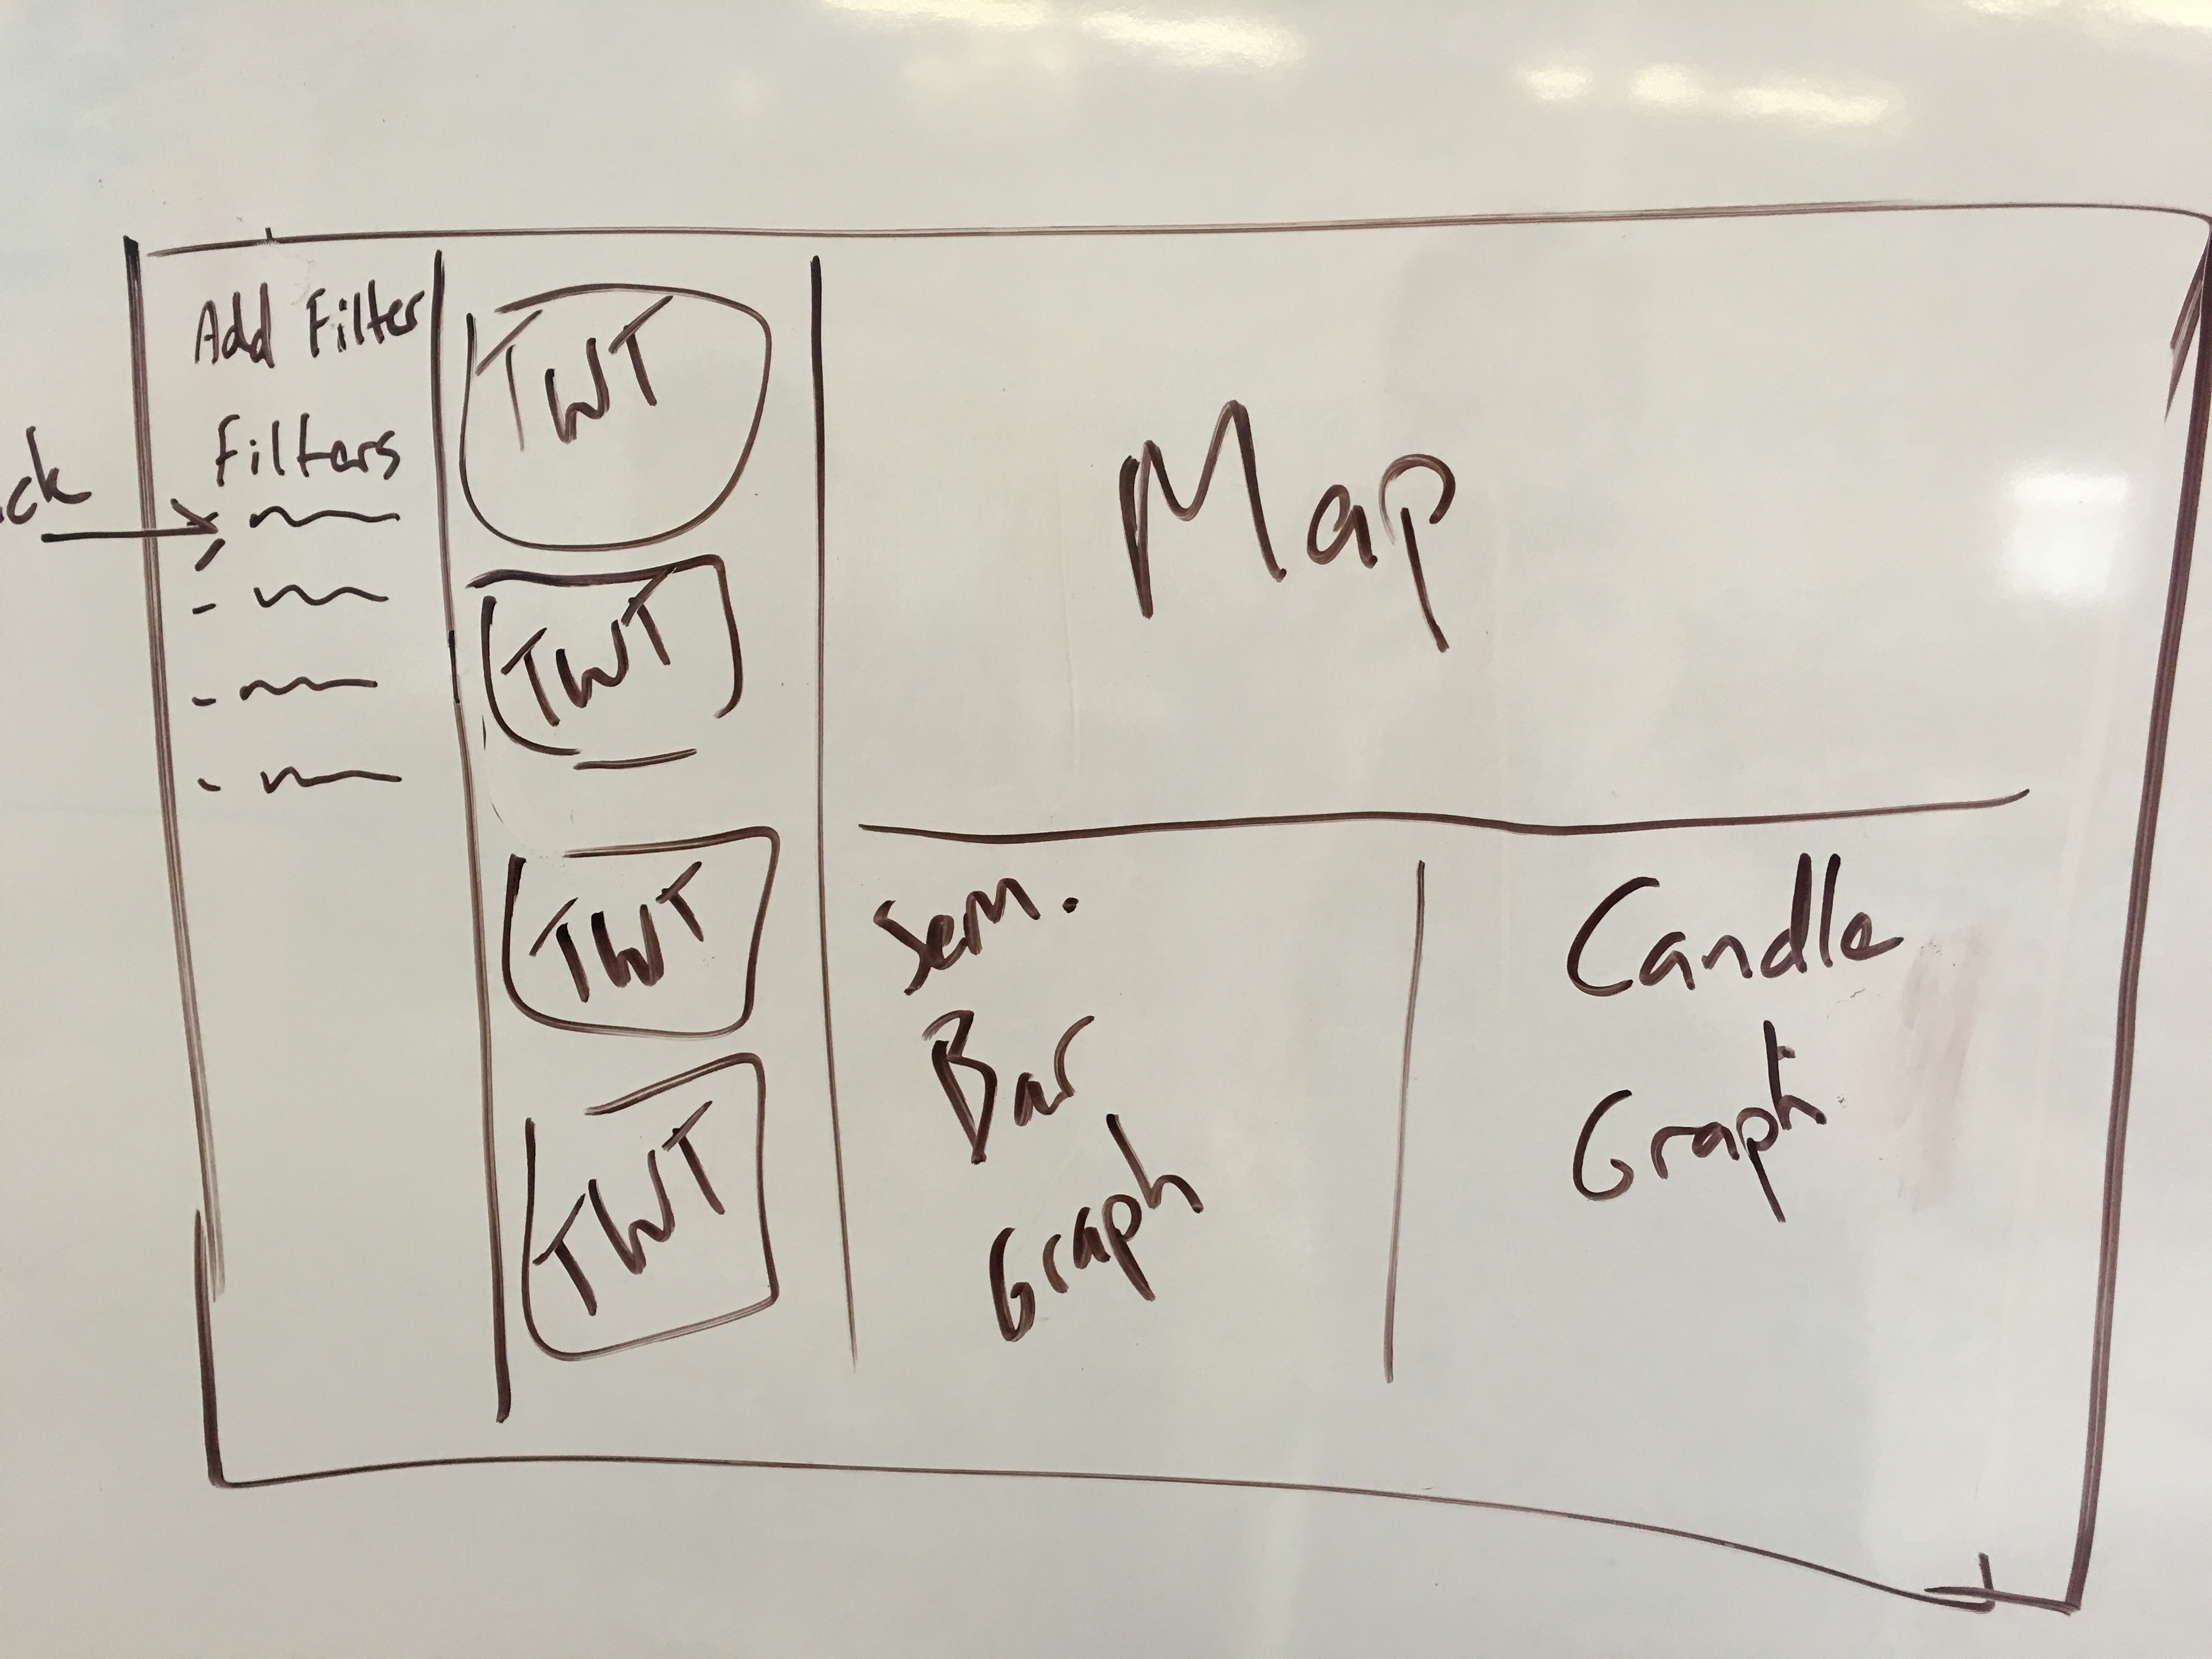 Add Filter
Filters
TWT
TWT
TWT
TWT
Map
Sem.
Bar
Graph
Candle
Graph